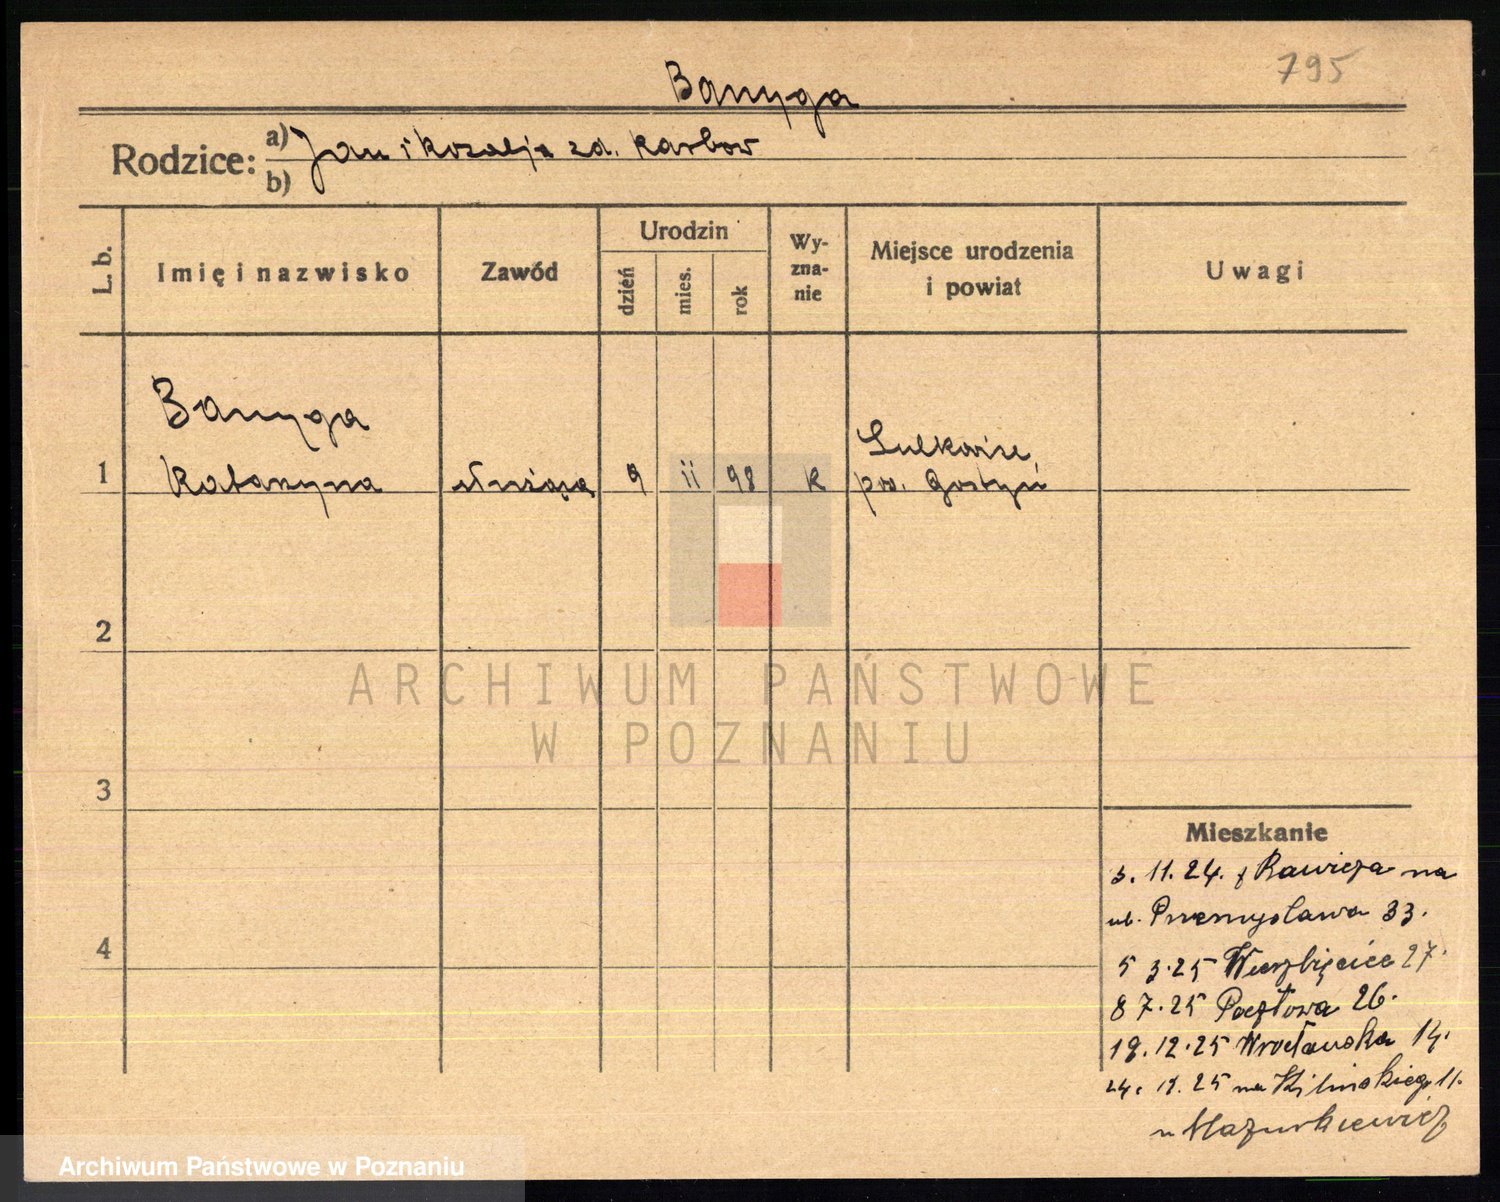 795
Banyga
Rodzice: a) Jan i Rozalja zd. Karbow
b)
L. b. Imię i nazwisko Zawód Urodzin dzień mies. rok Wy-zna-nie Miejsce urodzenia i powiat Uwagi
Banyga
1 Katarzyna służąca 9 ii 98 K pow. Gostyń
2
3
4
ARCHIWUM PAŃSTWOWE
W POZNANIU
Mieszkanie
3. 11. 24. z Rawicza na
ul. Przemysława 33.
5 3.25 Wierzbięcice 27.
8 7.25 Pocztowa 26.
19.12.25 Wrocławska 14.
25 na Kilińskiego 11.
u Mazurkiewicz
Archiwum Państwowe w Poznaniu